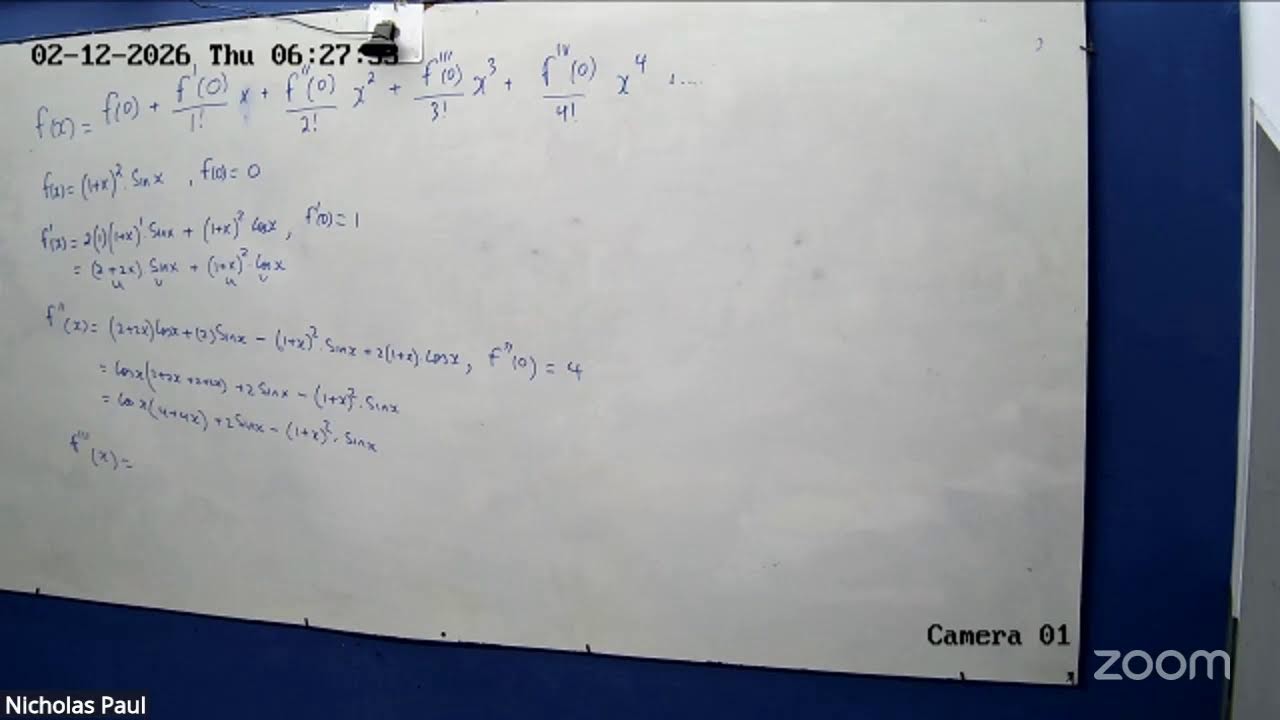 02-12-2026 Thu 06:27:
f(x) = f(0) + f'(0)/1! x + f''(0)/2! x² + f'''(0)/3! x³ + f^IV(0)/4! x⁴ + ....
f(x) = (1+x)² . Sin x , f(0) = 0
f'(x) = 2(1)(1+x)¹ . Sin x + (1+x)² Cos x , f'(0) = 1
= (2+2x) . Sin x + (1+x)² . Cos x
u v u v
f''(x) = (2+2x) Cos x + (2) Sin x − (1+x)² . Sin x + 2(1+x) . Cos x , f''(0) = 4
= Cos x (2+2x+2+2x) + 2 Sin x − (1+x)² . Sin x
= Cos x (4+4x) + 2 Sin x − (1+x)² . Sin x
f'''(x) =
Camera 01
zoom
Nicholas Paul